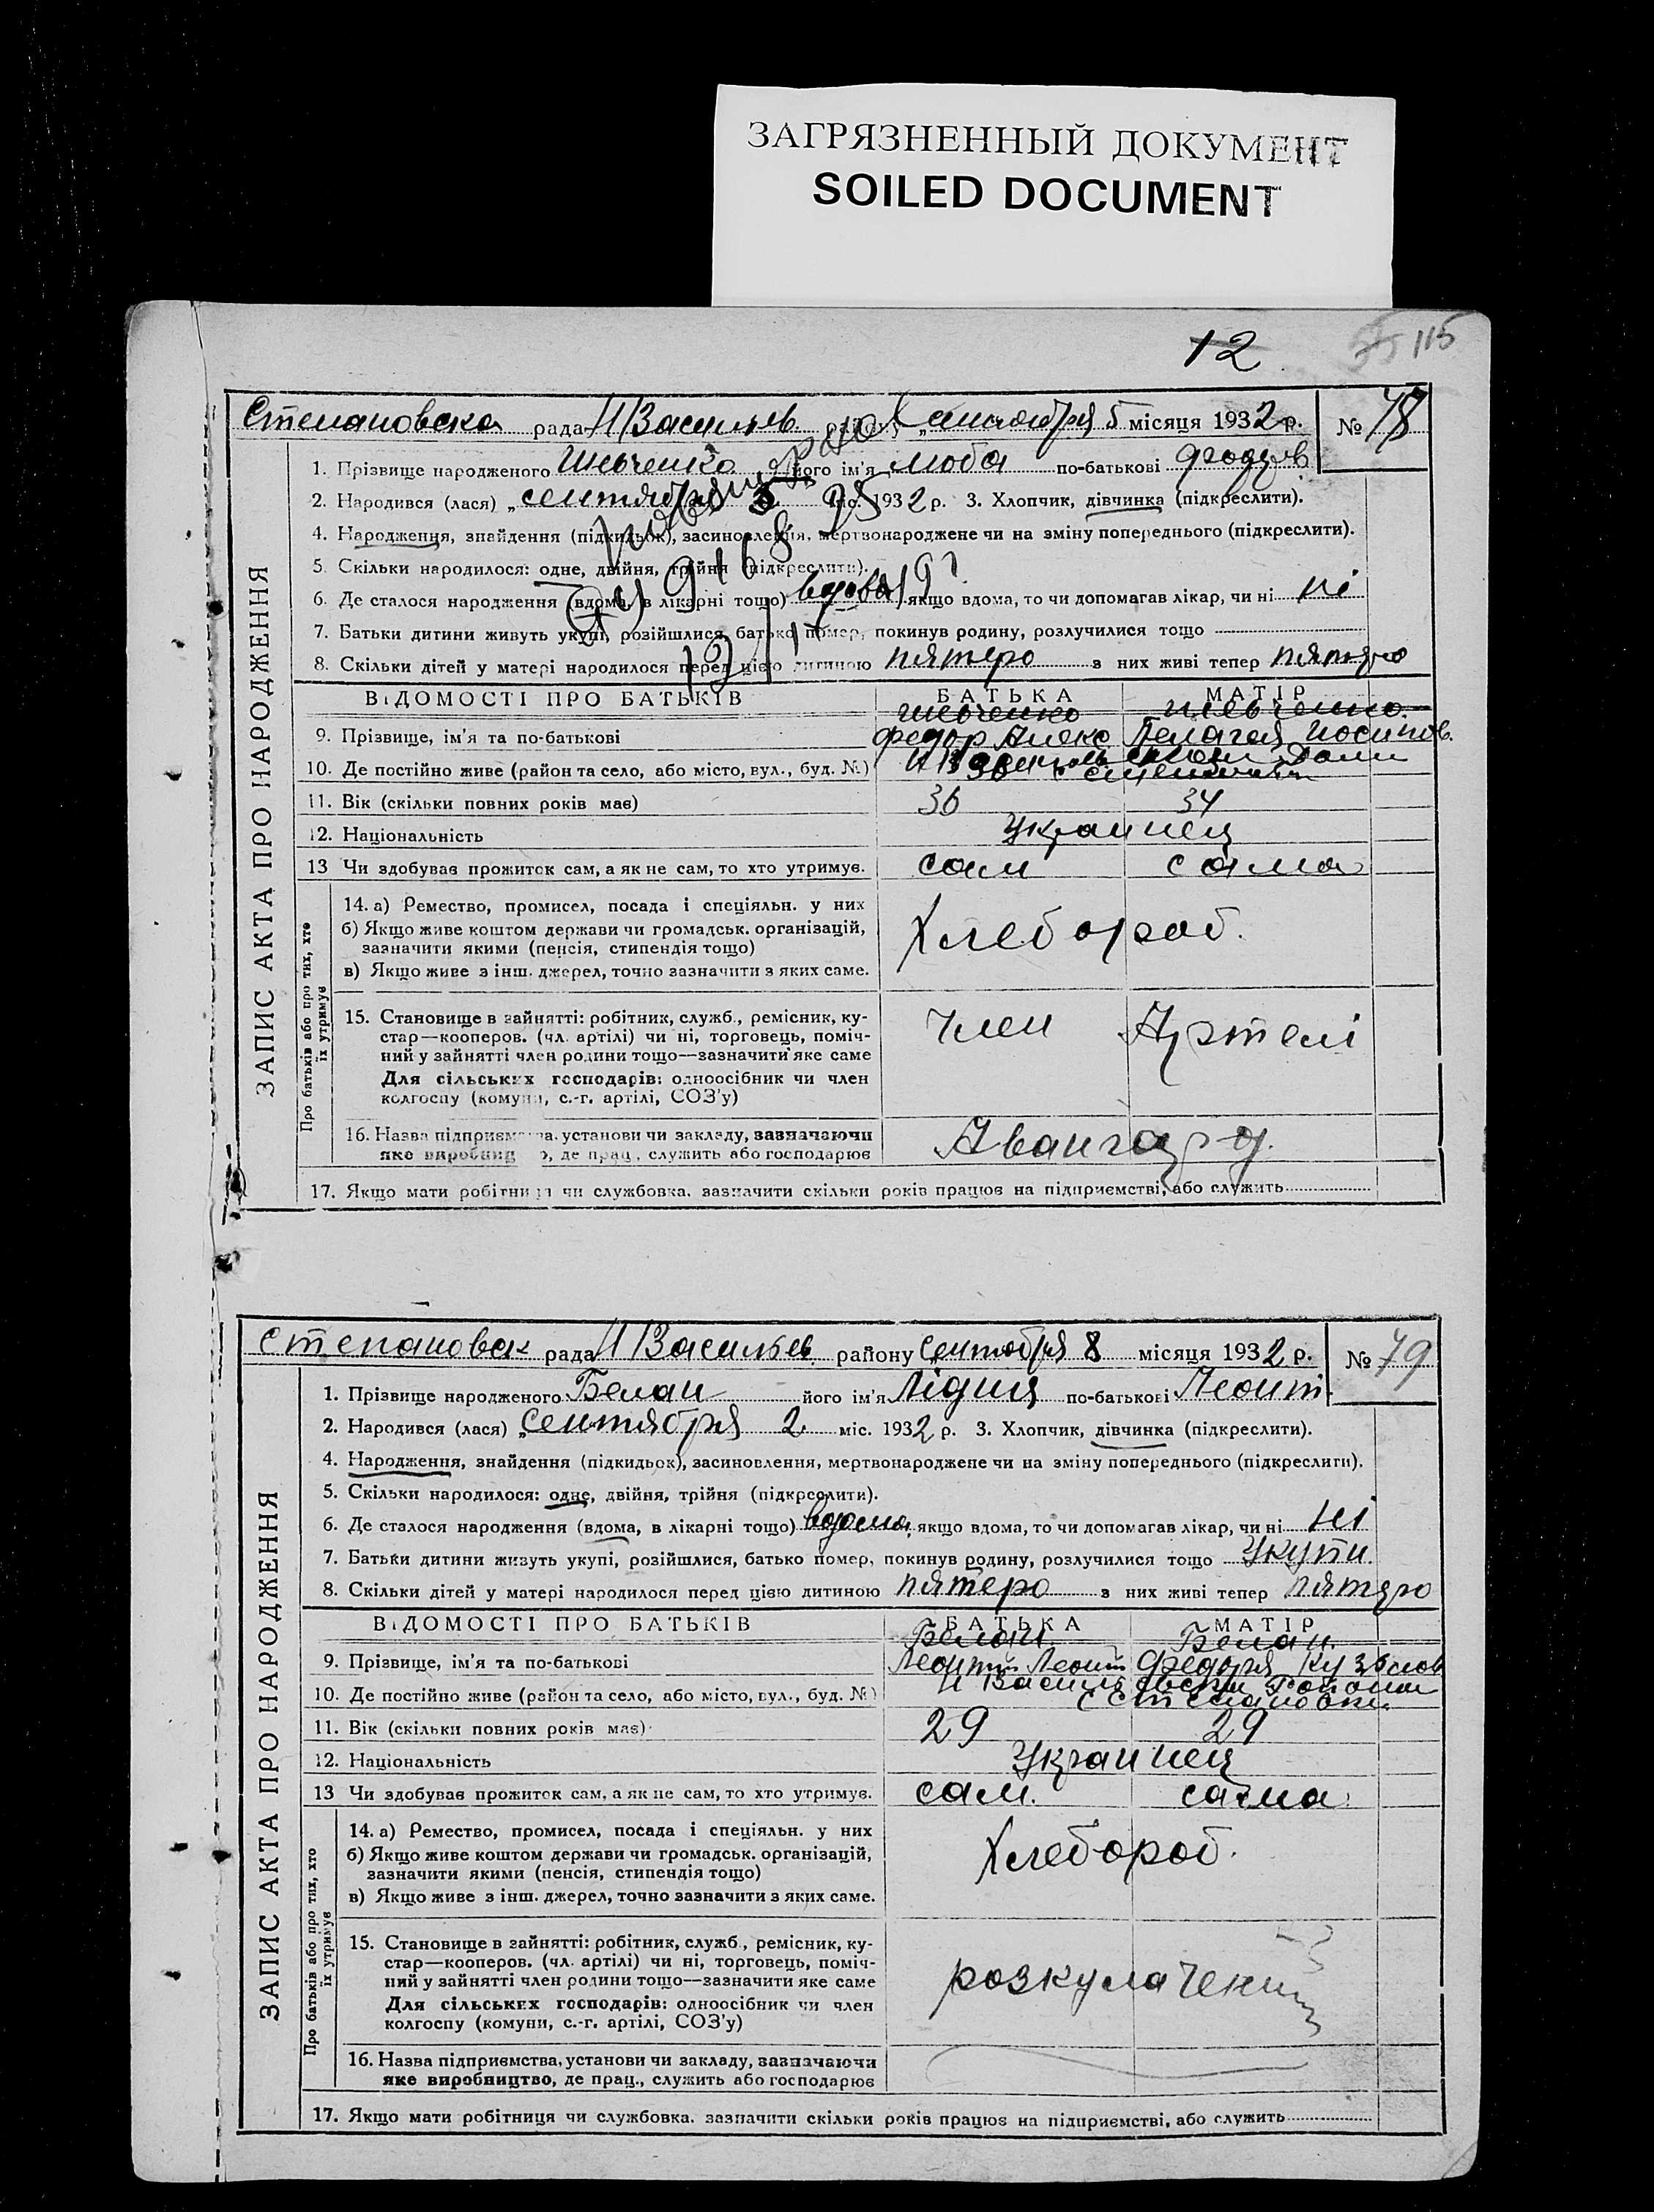 ЗАГРЯЗНЕННЫЙ ДОКУМЕНТ
SOILED DOCUMENT
12 115
Степановска рада Н Васильев району сентября 5 місяця 1932 р. № 78
ЗАПИС АКТА ПРО НАРОДЖЕННЯ
1. Прізвище народженого Шевченко його ім'я Люба по-батькові
2. Народився (лася) „ сентября 5 міс. 1932 р. 3. Хлопчик, дівчинка (підкреслити).
4. Народження, знайдення (підкидьок), засиновлення, мертвонароджене чи на зміну попереднього (підкреслити).
5. Скільки народилося: одне, двійня, трійня (підкреслити).
6. Де сталося народження (вдома, в лікарні тощо) вдома якщо вдома, то чи допомагав лікар, чи ні ні
7. Батьки дитини живуть укупі, розійшлися, батько помер, покинув родину, розлучилися тощо
8. Скільки дітей у матері народилося перед цією дитиною пятеро з них живі тепер пятеро
ВІДОМОСТІ ПРО БАТЬКІВ БАТЬКА МАТІР
Шевченко Шевченко
9. Прізвище, ім'я та по-батькові Федор Алекс Пелагея Иосипов.
10. Де постійно живе (район та село, або місто, вул., буд. №)
11. Вік (скільки повних років має) 36 34
12. Національність Украинец
13 Чи здобуває прожиток сам, а як не сам, то хто утримує. сам сама
Про батьків або про тих, хто їх утримує
14. а) Ремество, промисел, посада і спеціяльн. у них
б) Якщо живе коштом держави чи громадськ. організацій,
зазначити якими (пенсія, стипендія тощо)
в) Якщо живе з інш. джерел, точно зазначити з яких саме.
Хлебороб.
15. Становище в зайнятті: робітник, служб., ремісник, ку-
стар—кооперов. (чл. артілі) чи ні, торговець, поміч-
ний у зайнятті член родини тощо—зазначити яке саме
Для сільських господарів: одноосібник чи член
колгоспу (комуни, с.-г. артілі, СОЗ'у)
Член Артелі
16. Назва підприємства, установи чи закладу, зазначаючи
яке виробництво, де прац., служить або господарює
Авангард.
17. Якщо мати робітниця чи службовка, зазначити скільки років працює на підприємстві, або служить
Степановск рада Н Васильев. району Сентября 8 місяця 1932 р. № 79
ЗАПИС АКТА ПРО НАРОДЖЕННЯ
1. Прізвище народженого Белан його ім'я Лідия по-батькові Леонт.
2. Народився (лася) „ Сентября 2 міс. 1932 р. 3. Хлопчик, дівчинка (підкреслити).
4. Народження, знайдення (підкидьок), засиновлення, мертвонароджене чи на зміну попереднього (підкреслити).
5. Скільки народилося: одне, двійня, трійня (підкреслити).
6. Де сталося народження (вдома, в лікарні тощо) вдома, якщо вдома, то чи допомагав лікар, чи ні ні
7. Батьки дитини живуть укупі, розійшлися, батько помер, покинув родину, розлучилися тощо Укупи.
8. Скільки дітей у матері народилося перед цією дитиною пятеро з них живі тепер пятеро
ВІДОМОСТІ ПРО БАТЬКІВ БАТЬКА МАТІР
Белан Белан.
9. Прізвище, ім'я та по-батькові Леонтий Леонт Федора Кузьмов
10. Де постійно живе (район та село, або місто, вул., буд. №) Н Васильевски Район
с Степановки
11. Вік (скільки повних років має) 29 29
12. Національність Украинец
13 Чи здобуває прожиток сам, а як не сам, то хто утримує. сам. сама.
Про батьків або про тих, хто їх утримує
14. а) Ремество, промисел, посада і спеціяльн. у них
б) Якщо живе коштом держави чи громадськ. організацій,
зазначити якими (пенсія, стипендія тощо)
в) Якщо живе з інш. джерел, точно зазначити з яких саме.
Хлебороб.
15. Становище в зайнятті: робітник, служб., ремісник, ку-
стар—кооперов. (чл. артілі) чи ні, торговець, поміч-
ний у зайнятті член родини тощо—зазначити яке саме
Для сільських господарів: одноосібник чи член
колгоспу (комуни, с.-г. артілі, СОЗ'у)
розкулачений
16. Назва підприємства, установи чи закладу, зазначаючи
яке виробництво, де прац., служить або господарює
17. Якщо мати робітниця чи службовка, зазначити скільки років працює на підприємстві, або служить